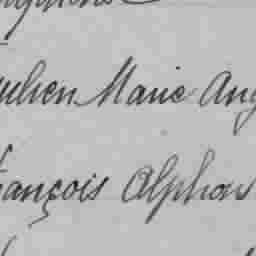 ulien Marie Ang
ançois Alphon